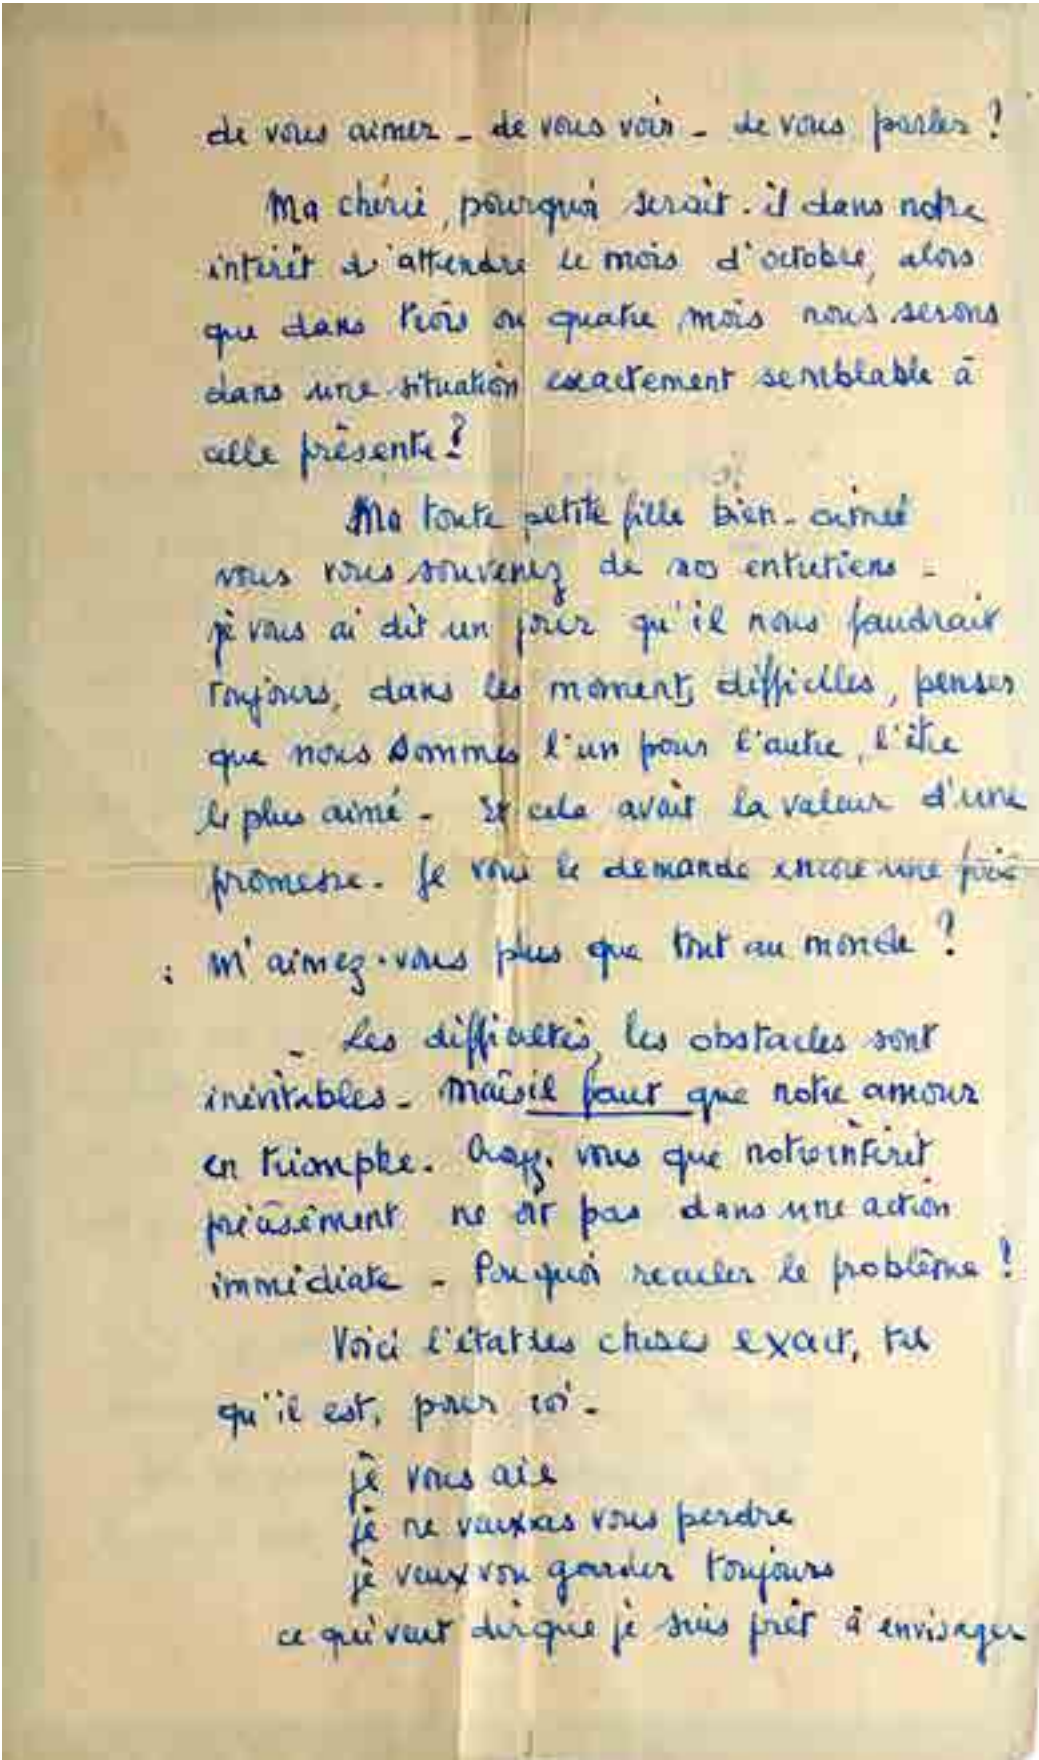 de vous aimer - de vous voir - de vous parler ?
Ma chérie, pourquoi serait-il dans notre
intérêt d'attendre le mois d'octobre, alors
que dans trois ou quatre mois nous serons
dans une situation exactement semblable à
celle présente ?
Ma toute petite fille bien-aimée
vous vous souvenez de nos entretiens -
je vous ai dit un jour qu'il nous faudrait
toujours, dans les moments difficiles, penser
que nous sommes l'un pour l'autre, l'être
le plus aimé - Et cela avait la valeur d'une
promesse. Je vous le demande encore une fois
: m'aimez-vous plus que tout au monde ?
- Les difficultés, les obstacles sont
inévitables - Mais il faut que notre amour
en triomphe. Croyez-vous que notre intérêt
précisément ne soit pas dans une action
immédiate - Pourquoi reculer le problème ?
Voici l'état des choses exact, tel
qu'il est, pour
je vous
je ne veux pas vous perdre
je veux vous garder toujours
ce qui veut dire que je suis prêt à envisager